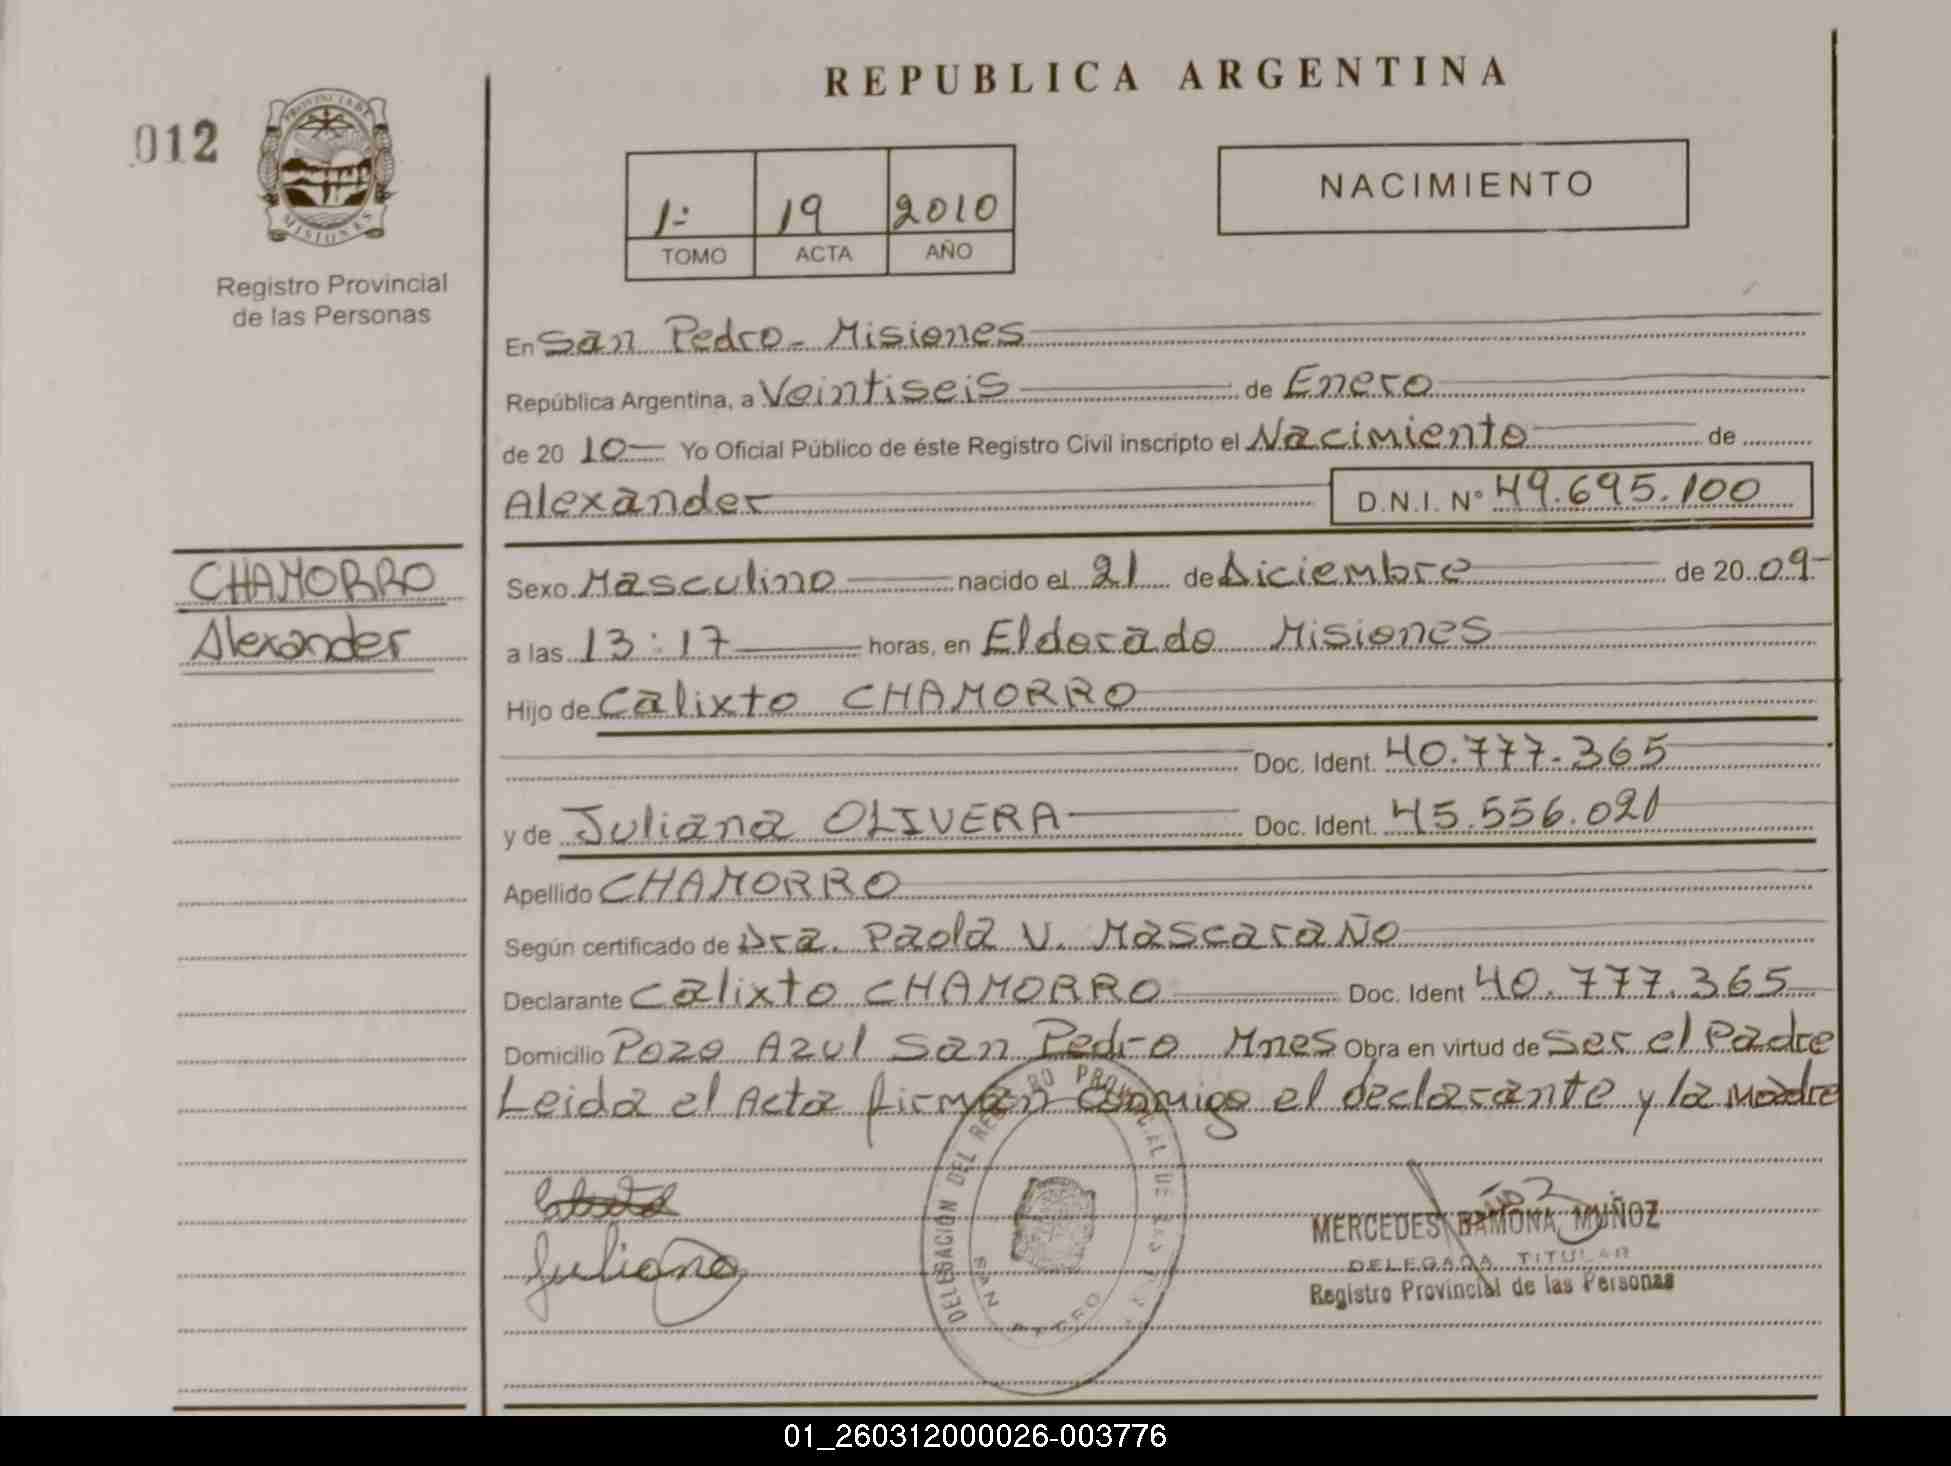 REPUBLICA ARGENTINA
012
PROVINCIA DE
MISIONES
Registro Provincial
de las Personas
1: 19 2010
TOMO ACTA AÑO
NACIMIENTO
En San Pedro - Misiones
República Argentina, a Veintiseis de Enero
de 20 10 Yo Oficial Público de éste Registro Civil inscripto el Nacimiento de
Alexander D.N.I. Nº 49.695.100
CHAMORRO
Alexander
Sexo Masculino nacido el 21 de Diciembre de 20 09
a las 13:17 horas, en Eldorado Misiones
Hijo de Calixto CHAMORRO
Doc. Ident. 40.777.365
y de Juliana OLIVERA Doc. Ident. 45.556.021
Apellido CHAMORRO
Según certificado de Dra. Paola V. Mascaraño
Declarante Calixto CHAMORRO Doc. Ident 40.777.365
Domicilio Pozo Azul San Pedro Mnes Obra en virtud de Ser el Padre
Leida el Acta firman conmigo el declarante y la Madre
Juliana
DELEGACIÓN DEL REGISTRO PROVINCIAL DE LAS
SAN PEDRO
MERCEDES RAMONA MUÑOZ
DELEGADA TITULAR
Registro Provincial de las Personas
01_260312000026-003776